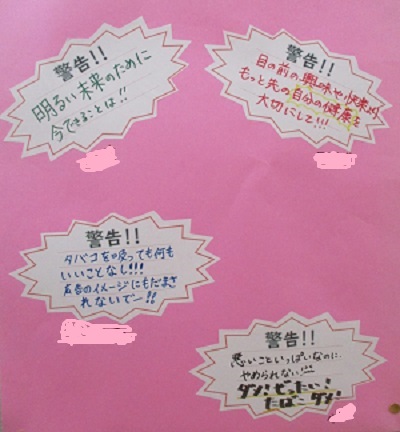 警告!!
明るい未来のために
今できることは!!
警告!!
目の前の興味や快楽より
もっと先の自分の健康を
大切にして!!!
警告!!
タバコを吸っても何も
いいことなし!!!
広告のイメージにもだまさ
れないでー!!
警告!!
悪いこといっぱいなのに
やめられない!!!
ダメ!ぜったい!
たばこダメ!